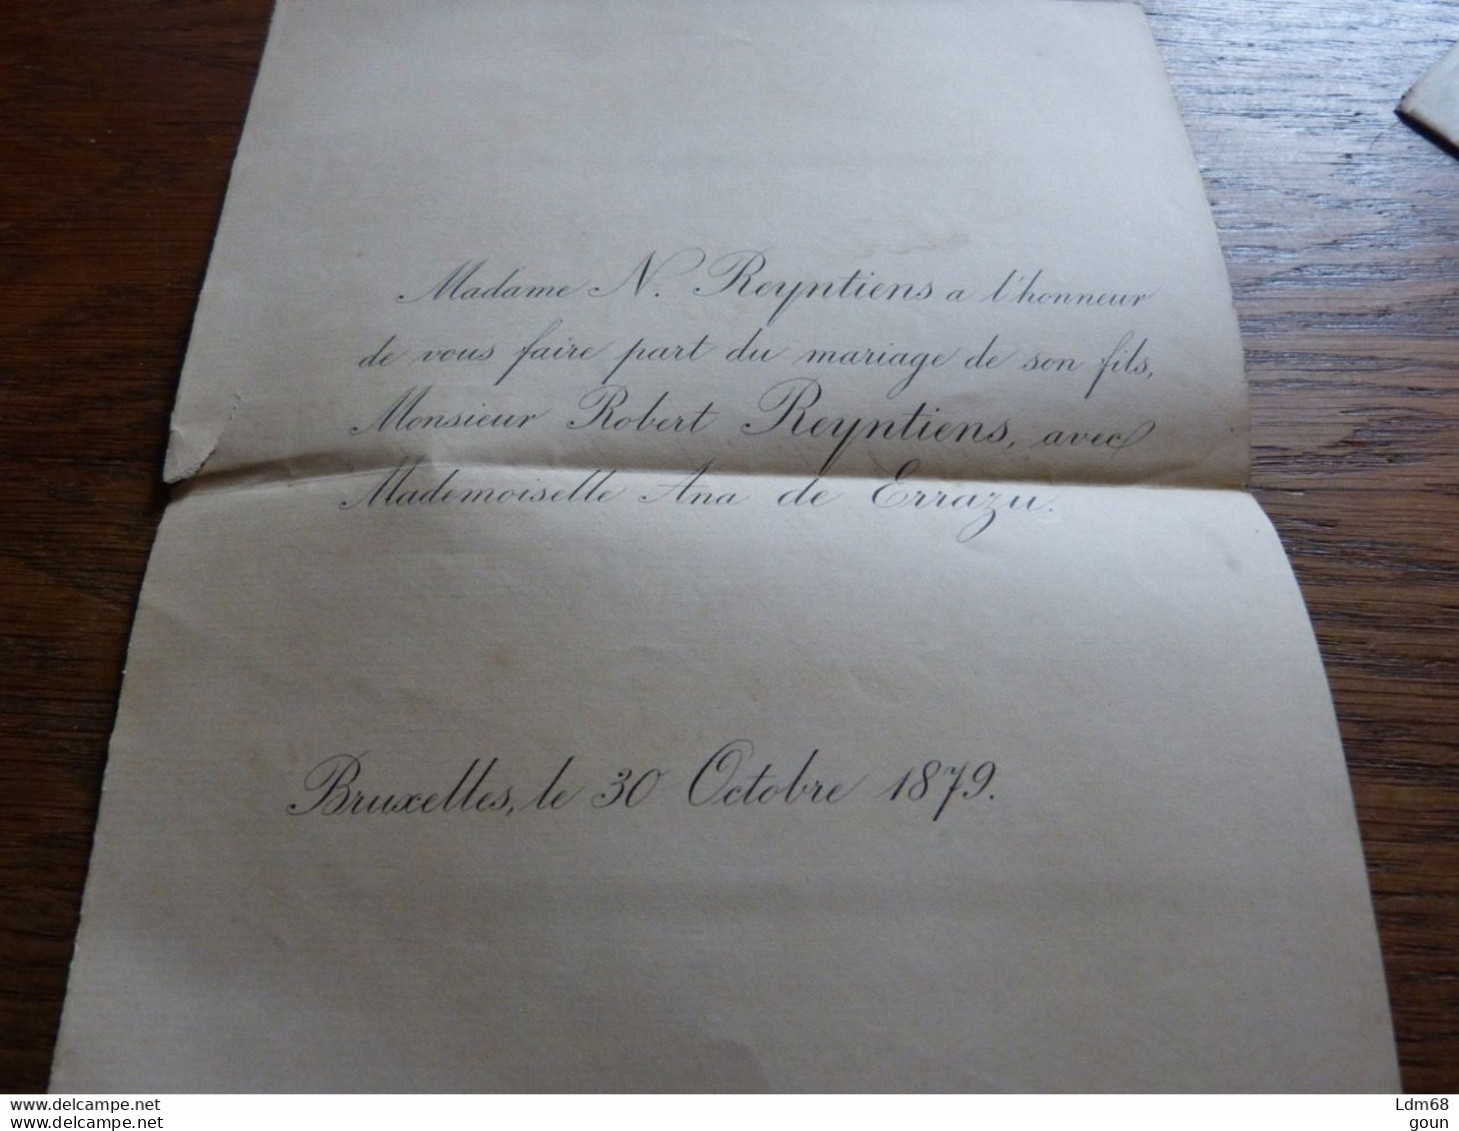 Madame N. Reyntiens a l'honneur
de vous faire part du mariage de son fils,
Monsieur Robert Reyntiens, avec
Mademoiselle Ana de Errazu.
Bruxelles, le 30 Octobre 1879.
www.delcampe.net
www.delcampe.net
Ldm68
goun